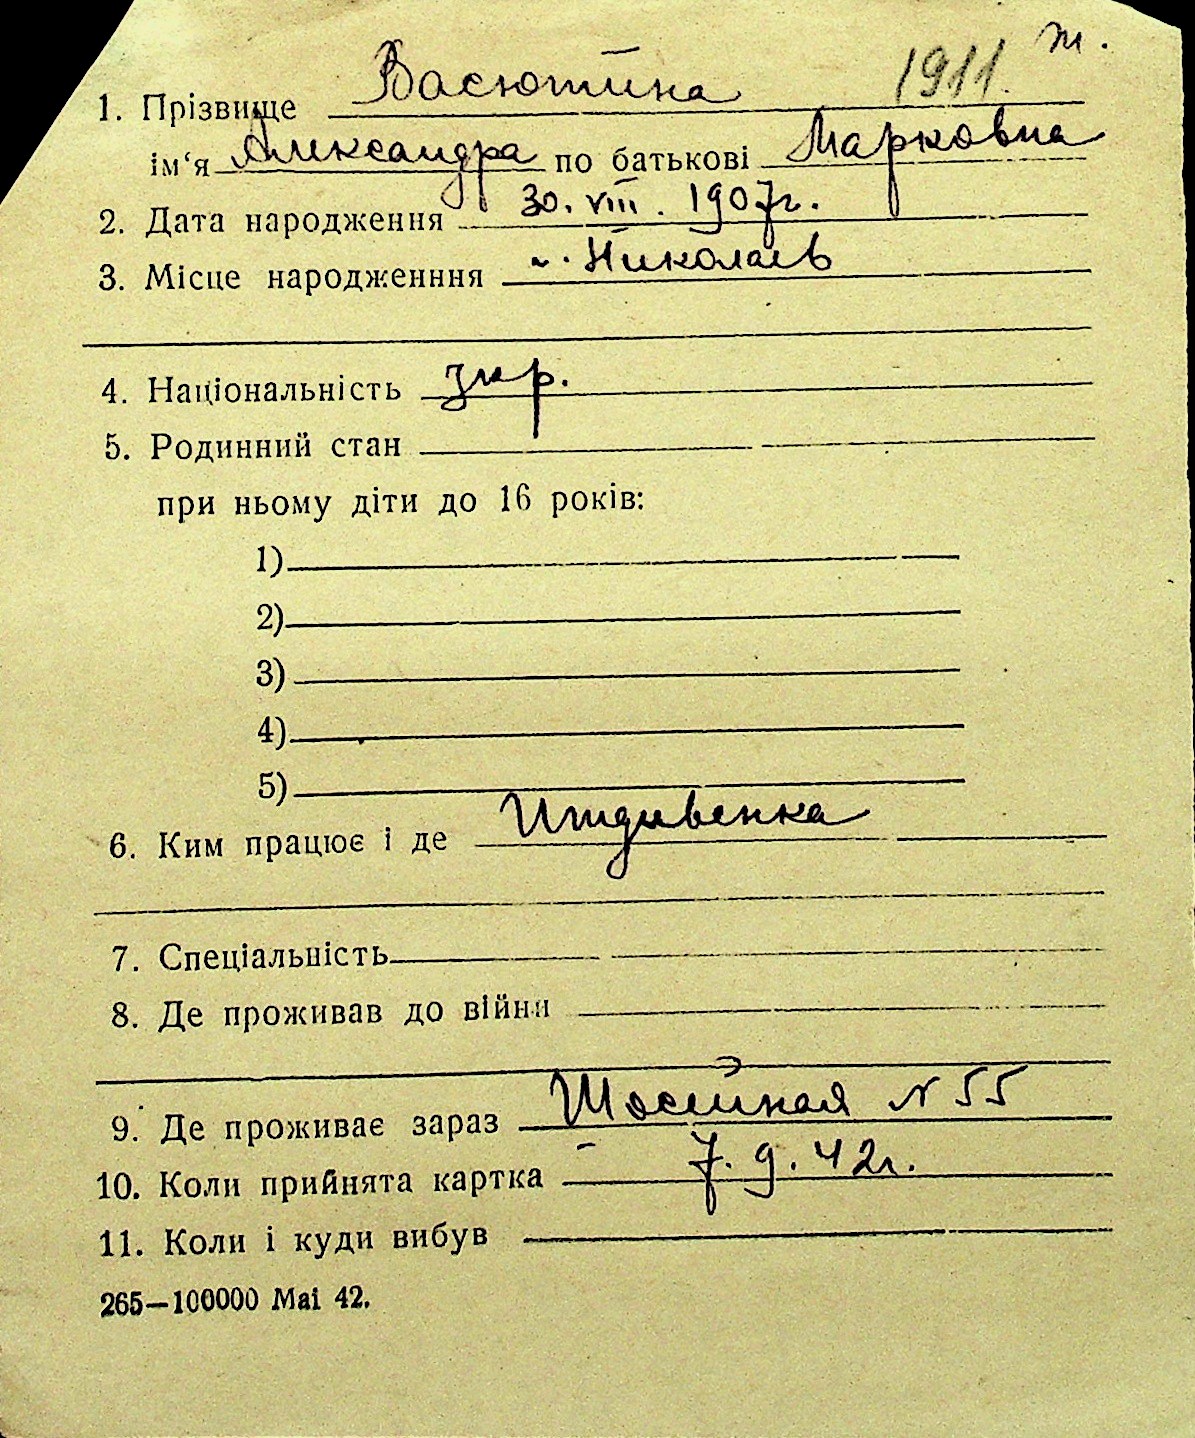 ж.
1. Прізвище Васютина 1911.
ім‘я Александра по батькові Марковна
2. Дата народження 30. VIII. 1907г.
3. Місце народженння г. Николаев
4. Національність укр.
5. Родинний стан
при ньому діти до 16 років:
1)
2)
3)
4)
5)
6. Ким працює і де Иждивенка
7. Спеціальність
8. Де проживав до війни
9. Де проживає зараз Шосейная N 55
10. Коли прийнята картка 7. 9. 42г.
11. Коли і куди вибув
265—100000 Mai 42.